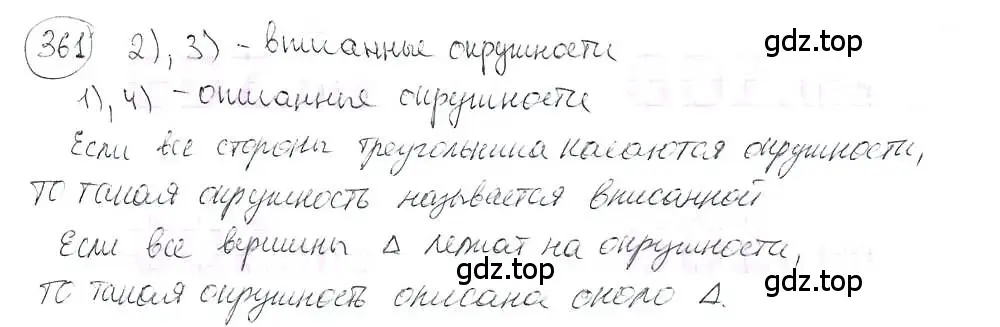 361 2), 3) – вписанные окружности
gdz.top
gdz.top
1), 4) – описанные окружности
Если все стороны треугольника касаются окружности,
то такая окружность называется вписанной
gdz.top
Если все вершины Δ лежат на окружности,
gdz.top
то такая окружность описана около Δ.
gdz.top